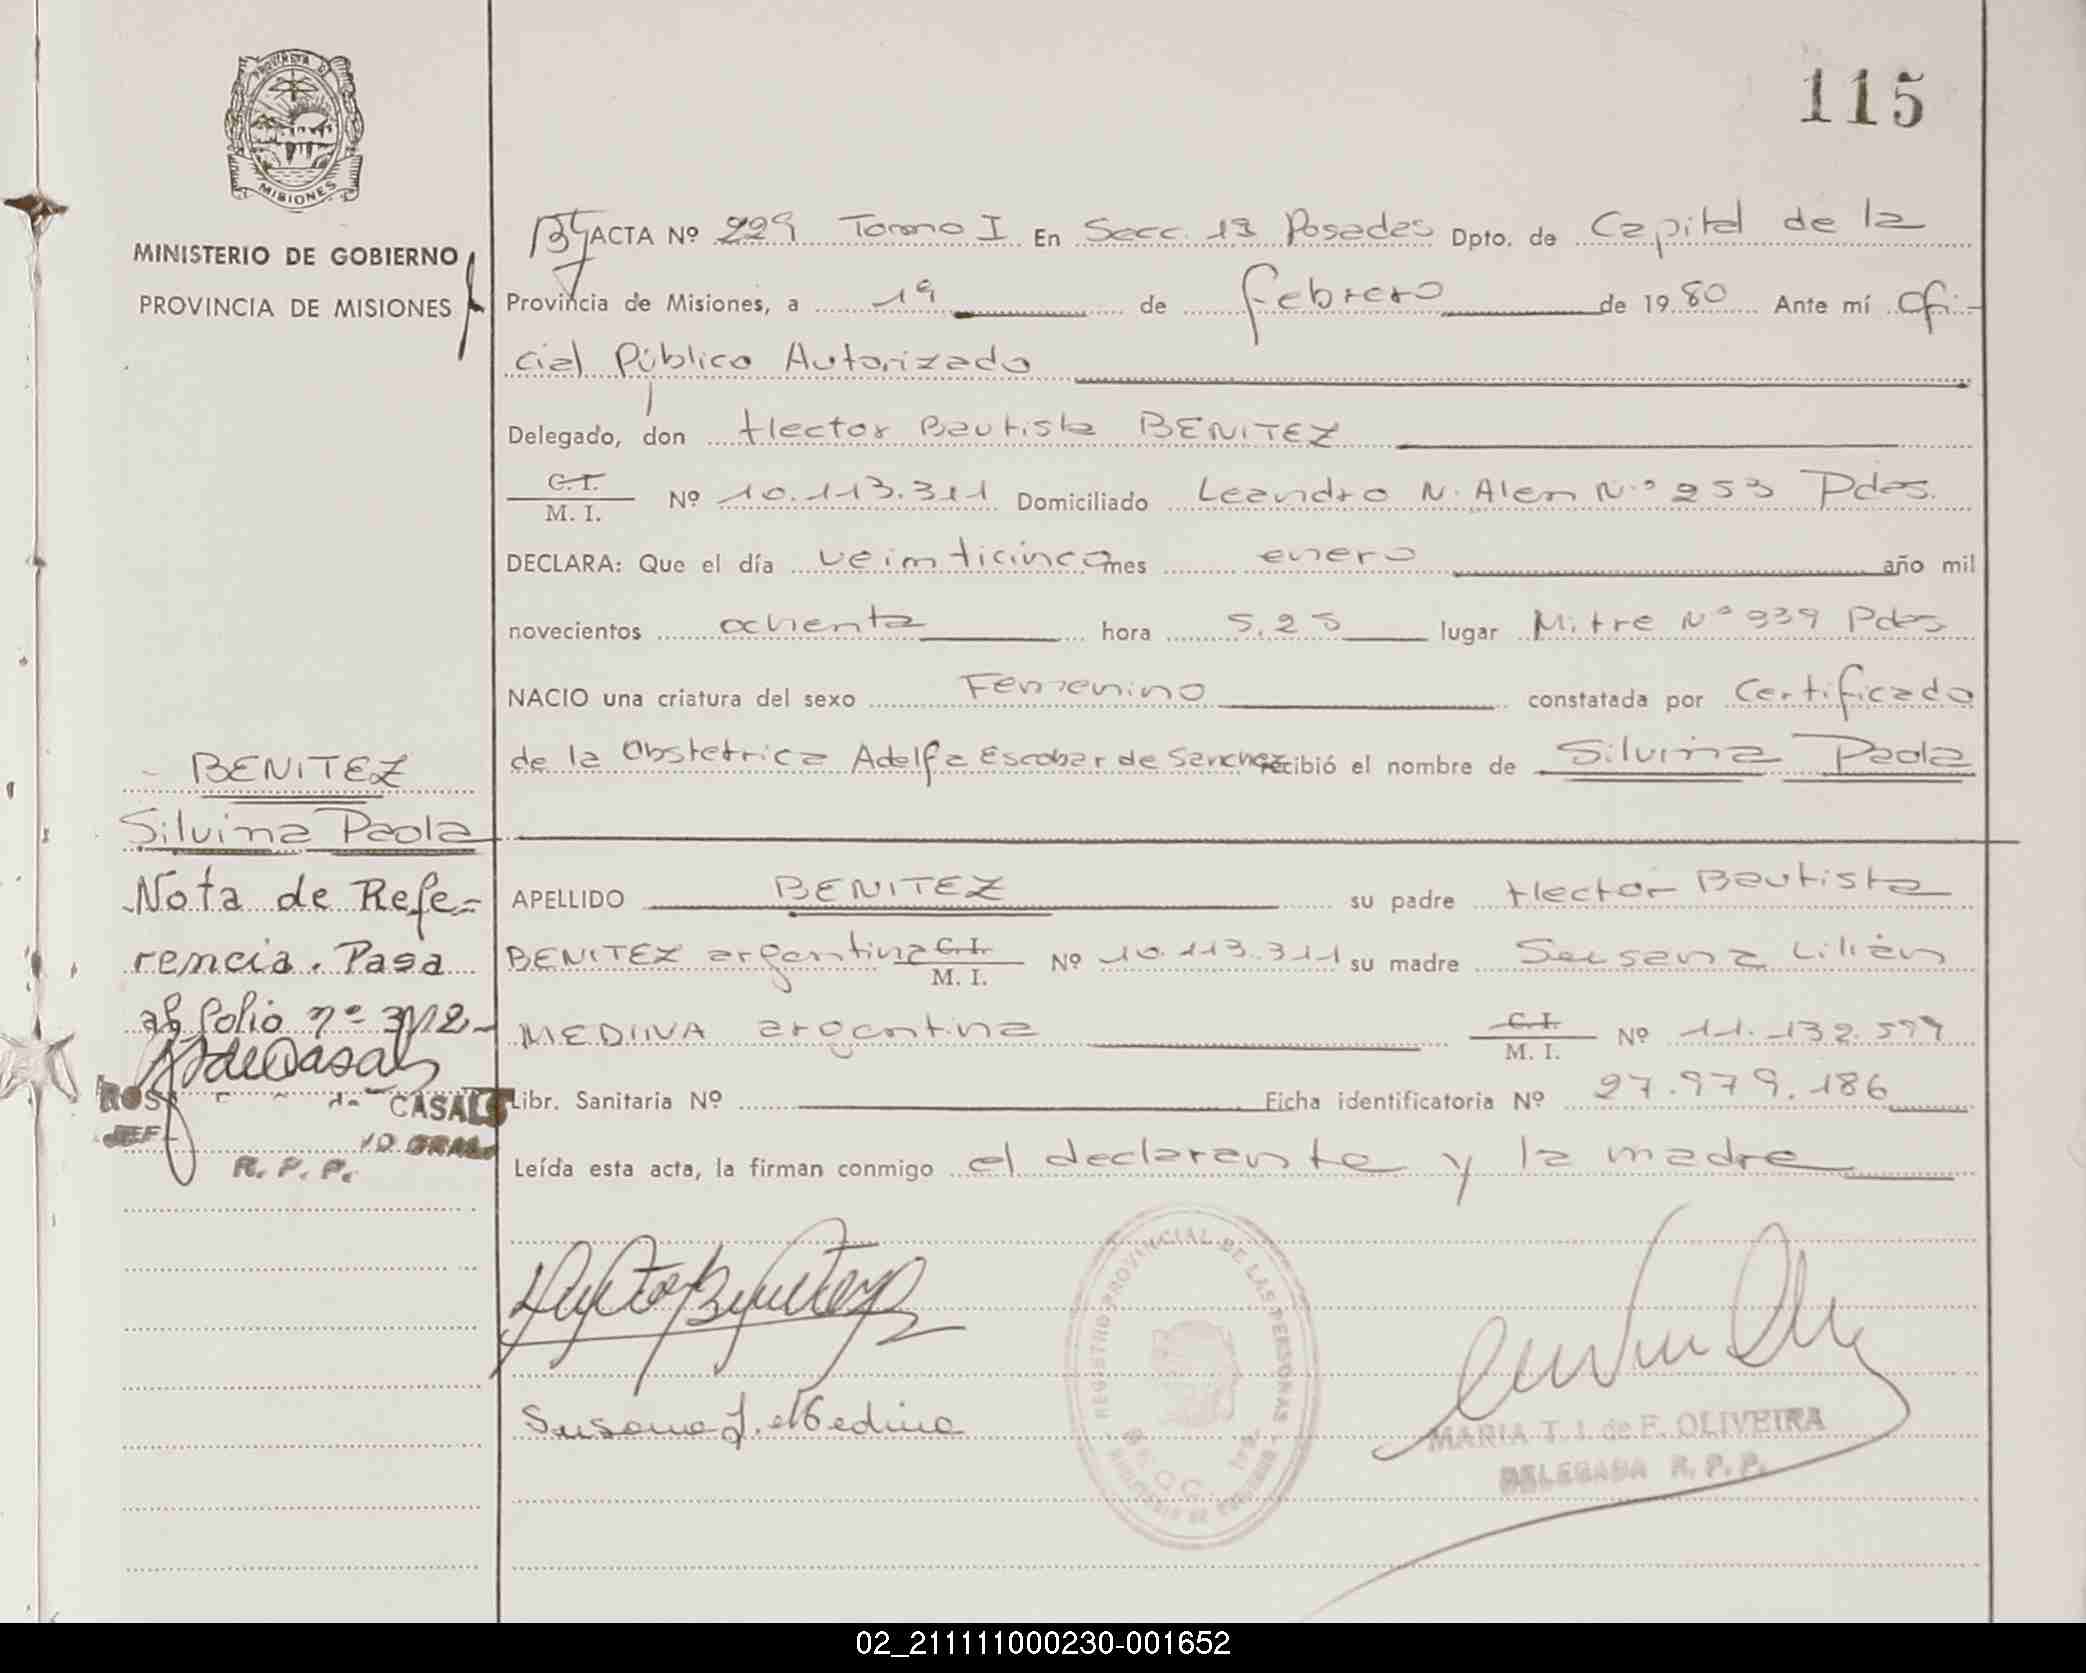 PROVINCIA D
MISIONES
115
MINISTERIO DE GOBIERNO
PROVINCIA DE MISIONES
ACTA Nº 229 Tomo I En Secc. 13 Posadas Dpto. de Capital de la
Provincia de Misiones, a 19 de febrero de 1980 Ante mí Ofi-
cial Público Autorizado
Delegado, don Hector Bautista BENITEZ
C.I.
M. I. Nº 10.113.311 Domiciliado Leandro N. Alem N.º 253 Pdas.
DECLARA: Que el día veinticinco mes enero año mil
novecientos ochenta hora 5.25 lugar Mitre Nº 939 Pdas
NACIO una criatura del sexo Femenino constatada por Certificado
de la Obstetrica Adelfa Escobar de Sanchez recibió el nombre de Silvina Paola
BENITEZ
Silvina Paola
Nota de Refe=
rencia. Pasa
al folio nº
CASALS
R. P. P.
APELLIDO BENITEZ su padre Hector Bautista
BENITEZ argentina C.I.
M. I. Nº 10.113.311 su madre Susana Lilián
MEDINA argentina C.I.
M. I. Nº 11.132.599
Libr. Sanitaria Nº Ficha identificatoria Nº 27.979.186
Leída esta acta, la firman conmigo el declarante y la madre
Susana L. Medina
REGISTRO PROVINCIAL DE LAS PERSONAS
MARIA T. I. de F. OLIVEIRA
DELEGADA R. P. P.
02_211111000230-001652